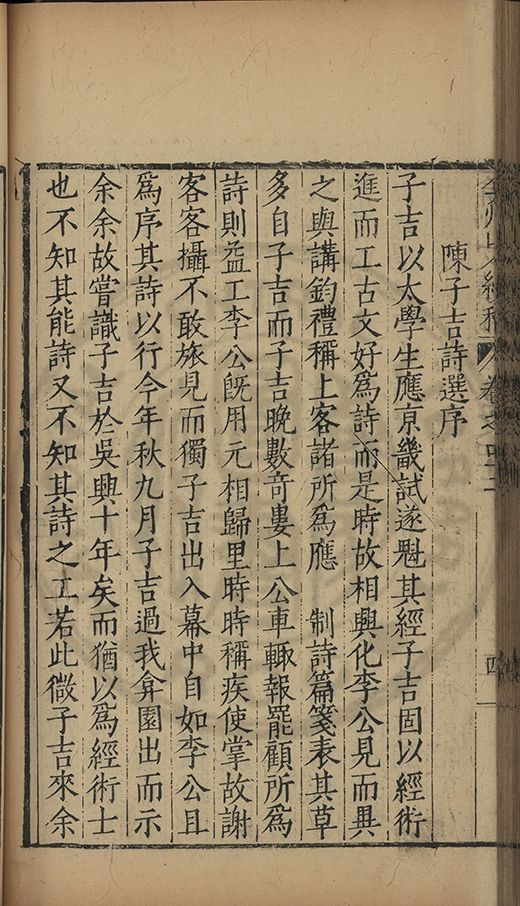 卷之四十二
四
陳子吉詩選序
子吉以太學生應京畿試遂魁其經子吉固以經術
進而工古文好爲詩而是時故相興化李公見而異
之與講鈞禮稱上客諸所爲應　制詩篇箋表其草
多自子吉而子吉晚數奇婁上公車輙報罷顧所爲
詩則益工李公旣用元相歸里時時稱疾使掌故謝
客客攝不敢旅見而獨子吉出入幕中自如李公且
爲序其詩以行今年秋九月子吉過我弇園出而示
余余故嘗識子吉於吳興十年矣而猶以爲經術士
也不知其能詩又不知其詩之工若此微子吉來余